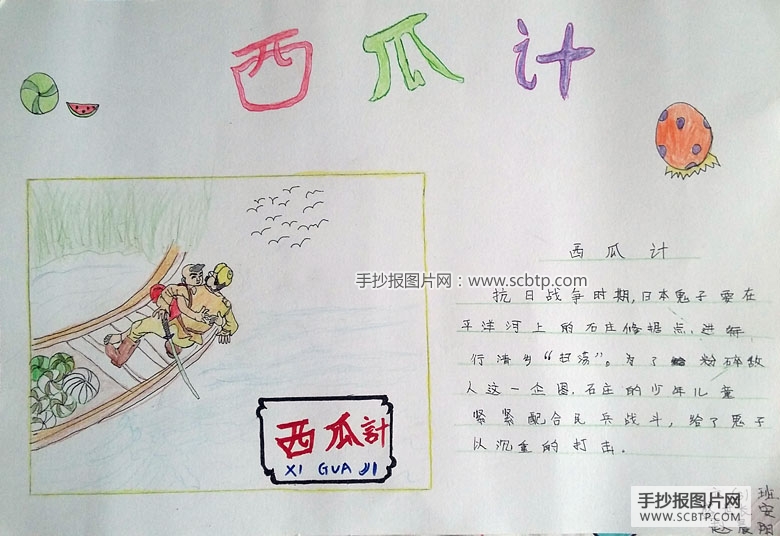 西瓜计
西瓜计
手抄报图片网:www.scbtp.com
抗日战争时期,日本鬼子要在
平洋河上的石庄修据点,进行
行清乡“扫荡”。为了粉碎敌
人这一企图,石庄的少年儿童
紧紧配合民兵战斗,给了鬼子
以沉重的打击。
西瓜計
XI GUA JI
班
安
阳
手抄报图片网
www.scbtp.com